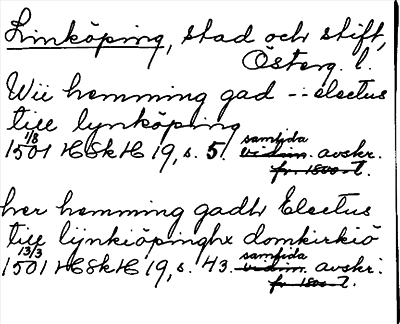 Linköping, stad och stift,
Österg. l.
Wii hemming gad -- electus
till lynköping
1/8
1501 HSkH 19, s. 5. samtida vidim. avskr.
fr. 1800-t.
her hemming gadh Electus
till lijnkiöpinghx domkirkiö
13/3
1501 HSkH 19, s. 43. samtida vidim. avskr.
fr. 1800-t.